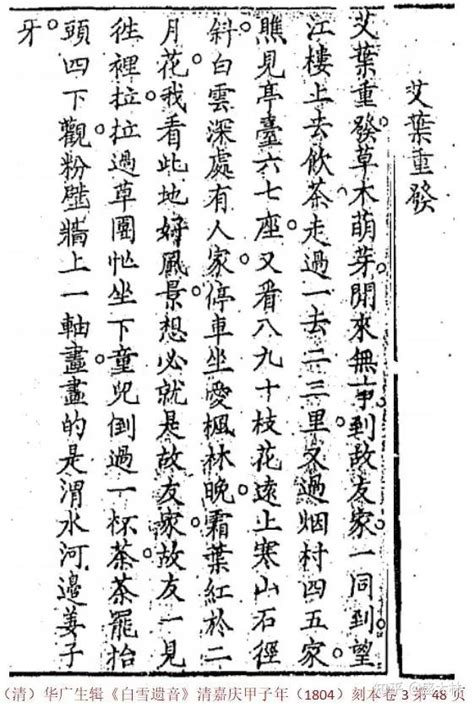 艾葉重發
艾葉重發草木萌芽閒來無事到故友家一同到望
江樓上去飲茶走過一去二三里又過烟村四五家
瞧見亭臺六七座又看八九十枝花遠上寒山石徑
斜白雲深處有人家停車坐愛楓林晚霜葉紅於二
月花我看此地好風景想必就是故友家故友一見
徃裡拉拉過草團他坐下童兒倒過一杯茶茶罷抬
頭四下觀粉壁牆上一軸畫畫的是渭水河邊姜子
牙
（清）华广生辑《白雪遗音》清嘉庆甲子年（1804）刻本卷 3 第 48 页
知乎